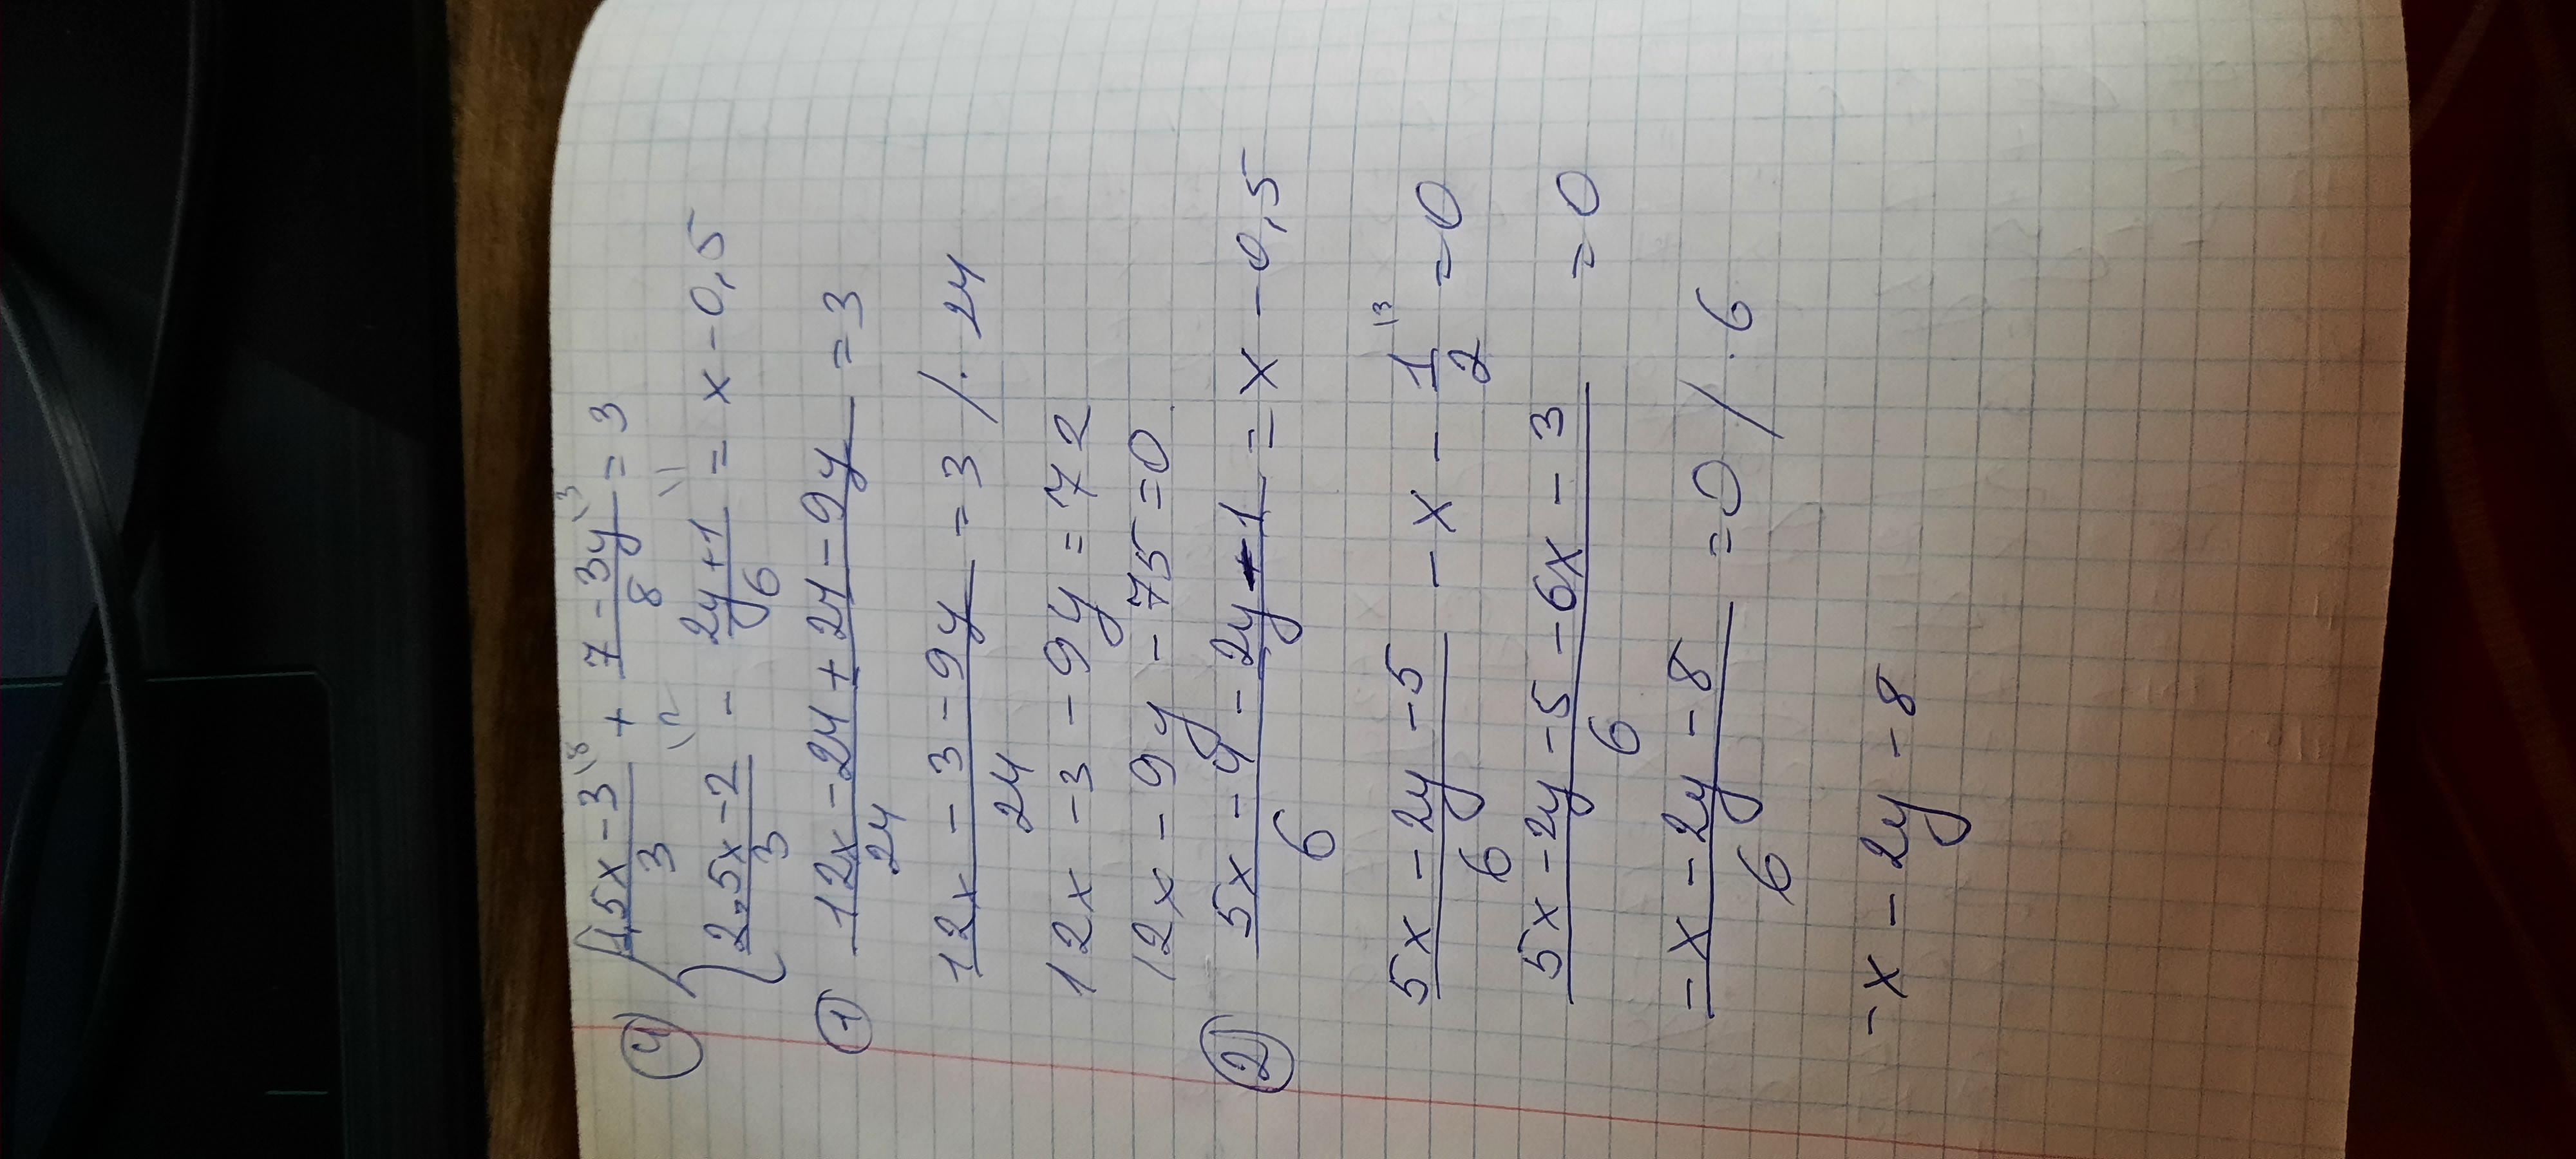 4) { (1,5x-3)/3 \8 + (7-3y)/8 \3 = 3
(2,5x-2)/3 \2 - (2y+1)/6 \1 = x-0,5
1) (12x-24+21-9y)/24 = 3
(12x-3-9y)/24 = 3 /·24
12x-3-9y=72
12x-9y-75=0
2) (5x-4-2y-1)/6 = x-0,5
(5x-2y-5)/6 -x - 1/2 \3 =0
(5x-2y-5-6x-3)/6 =0
(-x-2y-8)/6 =0 /·6
-x-2y-8